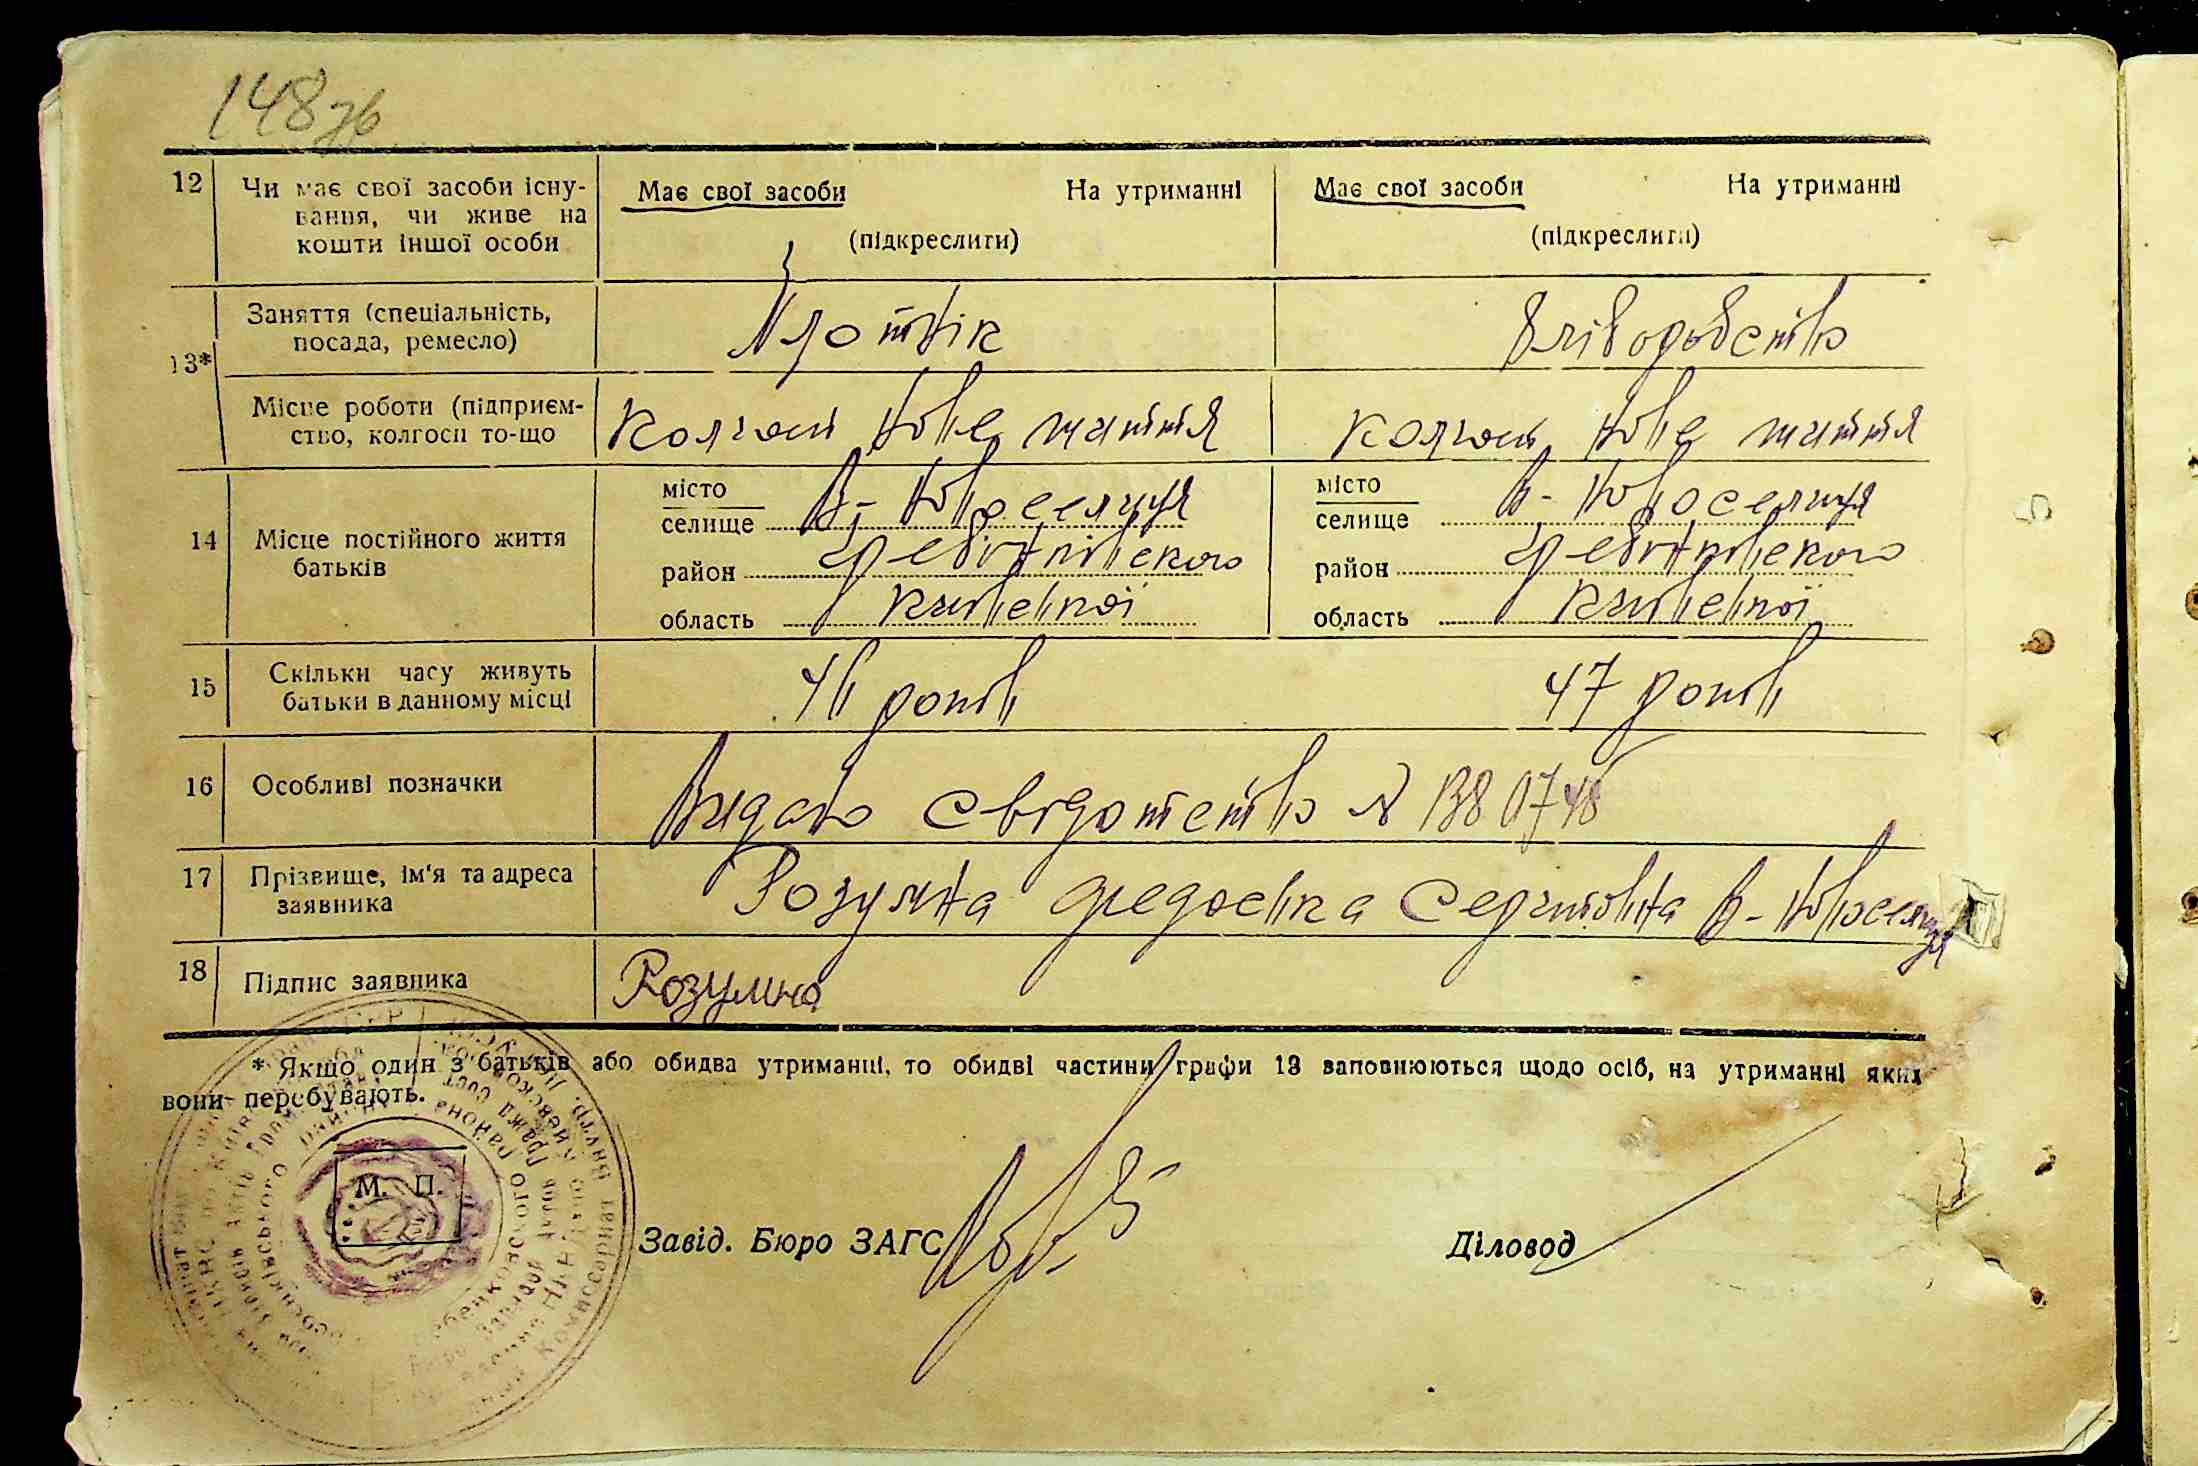 148 зв
12 Чи має свої засоби існу- Має свої засоби На утриманні Має свої засоби На утриманні
вання, чи живе на
кошти іншої особи (підкреслити) (підкреслити)
13* Заняття (спеціальність, Плотнік Хліборобство
посада, ремесло)
Місце роботи (підприєм- Колгосп Нове життя Колгосп Нове життя
ство, колгосп то-що
14 Місце постійного життя
батьків
місто В-Новоселиця місто В-Новоселиця
селище селище
район Гребінківського район Гребінківського
область Київської область Київської
15 Скільки часу живуть 46 років 47 років
батьки в данному місці
16 Особливі позначки Видано свідотство № 1380748
17 Прізвище, ім'я та адреса Розумна Федоська Сергиївна В-Новоселиця
заявника
18 Підпис заявника Розумна
* Якщо один з батьків або обидва утриманці, то обидві частини графи 13 заповнюються щодо осіб, на утриманні яких
вони перебувають.
М. П.
Завід. Бюро ЗАГС Діловод